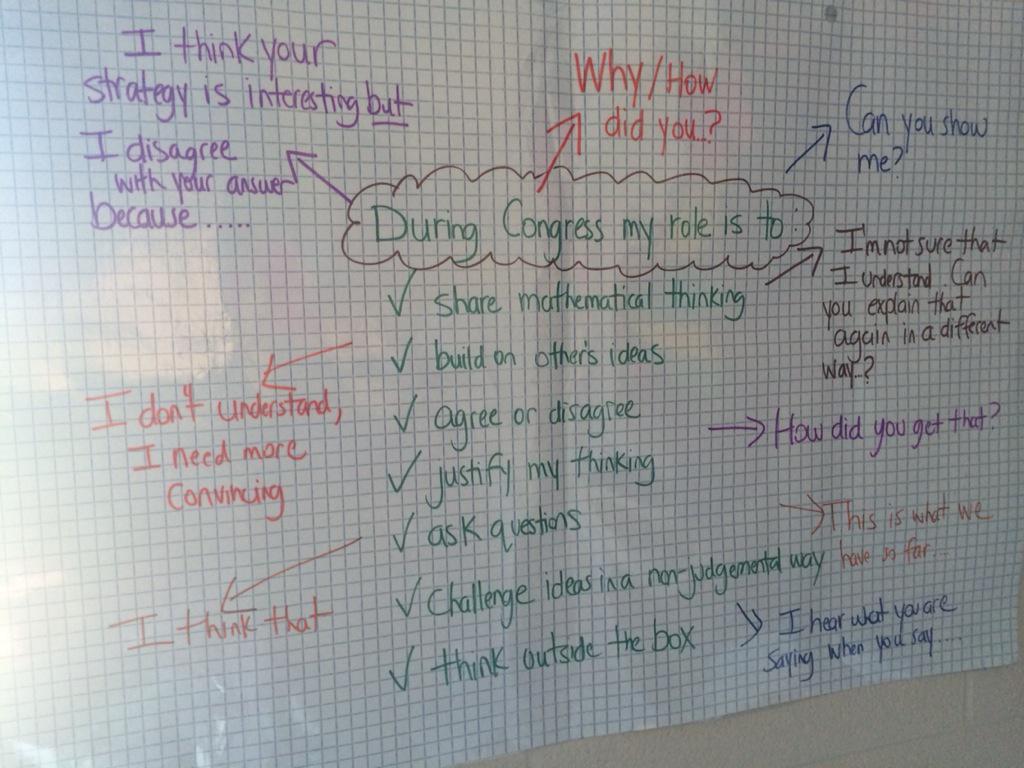 I think your
strategy is interesting but
I disagree
with your answer
because.....
Why/How
did you..?
Can you show
me?
During Congress my role is to:
I'm not sure that
I understand Can
you explain that
again in a different
way..?
✓ share mathematical thinking
✓ build on other's ideas
✓ agree or disagree
✓ justify my thinking
✓ ask questions
✓ challenge ideas in a non-judgemental way
✓ think outside the box
I don't understand,
I need more
convincing
I think that
How did you get that?
This is what we
have so far...
I hear what you are
saying when you say....